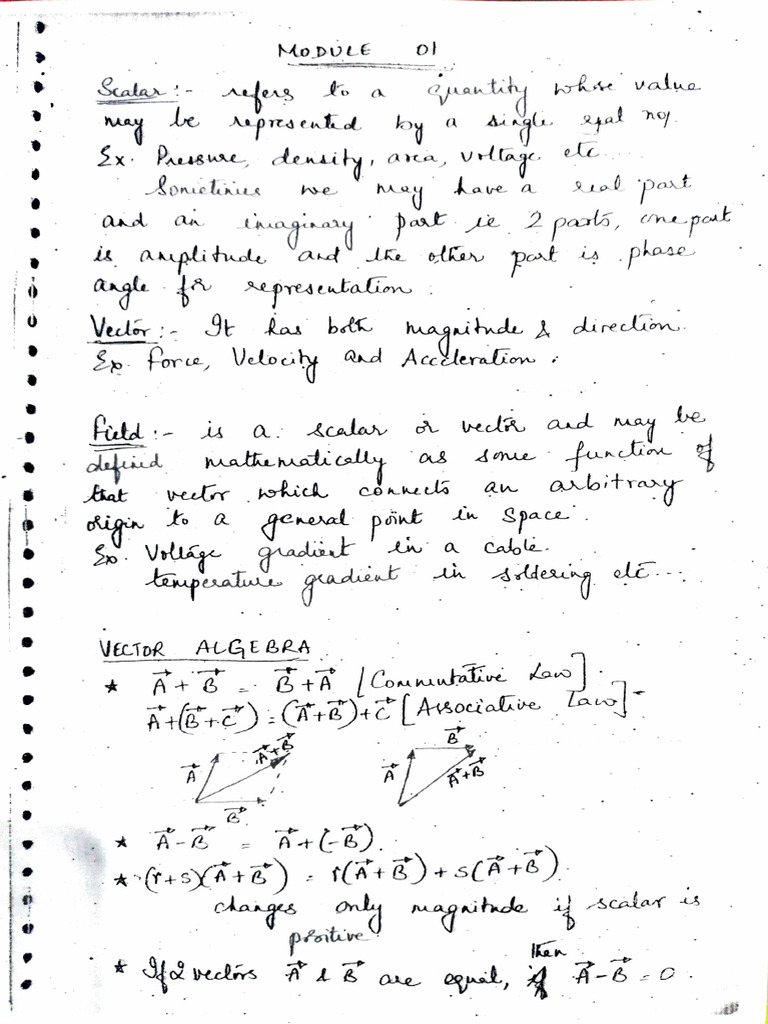 MODULE 01
Scalar :- refers to a quantity whose value
may be represented by a single real no/.
Ex. Pressure, density, area, voltage etc...
Sometimes we may have a real part
and an imaginary part ie 2 parts, one part
is amplitude and the other part is phase
angle for representation.
Vector :- It has both magnitude & direction.
Ex. Force, Velocity and Acceleration.
Field :- is a scalar or vector and may be
defined mathematically as some function of
that vector which connects an arbitrary
origin to a general point in space.
Ex. Voltage gradient in a cable.
temperature gradient in soldering etc...
VECTOR ALGEBRA
* A⃗ + B⃗ = B⃗ + A⃗ [Commutative Law].
A⃗+(B⃗+C⃗) = (A⃗+B⃗)+C⃗ [Associative Law]-
A⃗ A⃗+B⃗ B⃗
A⃗ B⃗ A⃗+B⃗
* A⃗-B⃗ = A⃗+(-B⃗).
* (r+s)(A⃗+B⃗) = r(A⃗+B⃗)+s(A⃗+B⃗)
changes only magnitude if scalar is
positive.
* If 2 vectors A⃗ & B⃗ are equal, then A⃗-B⃗ = 0.